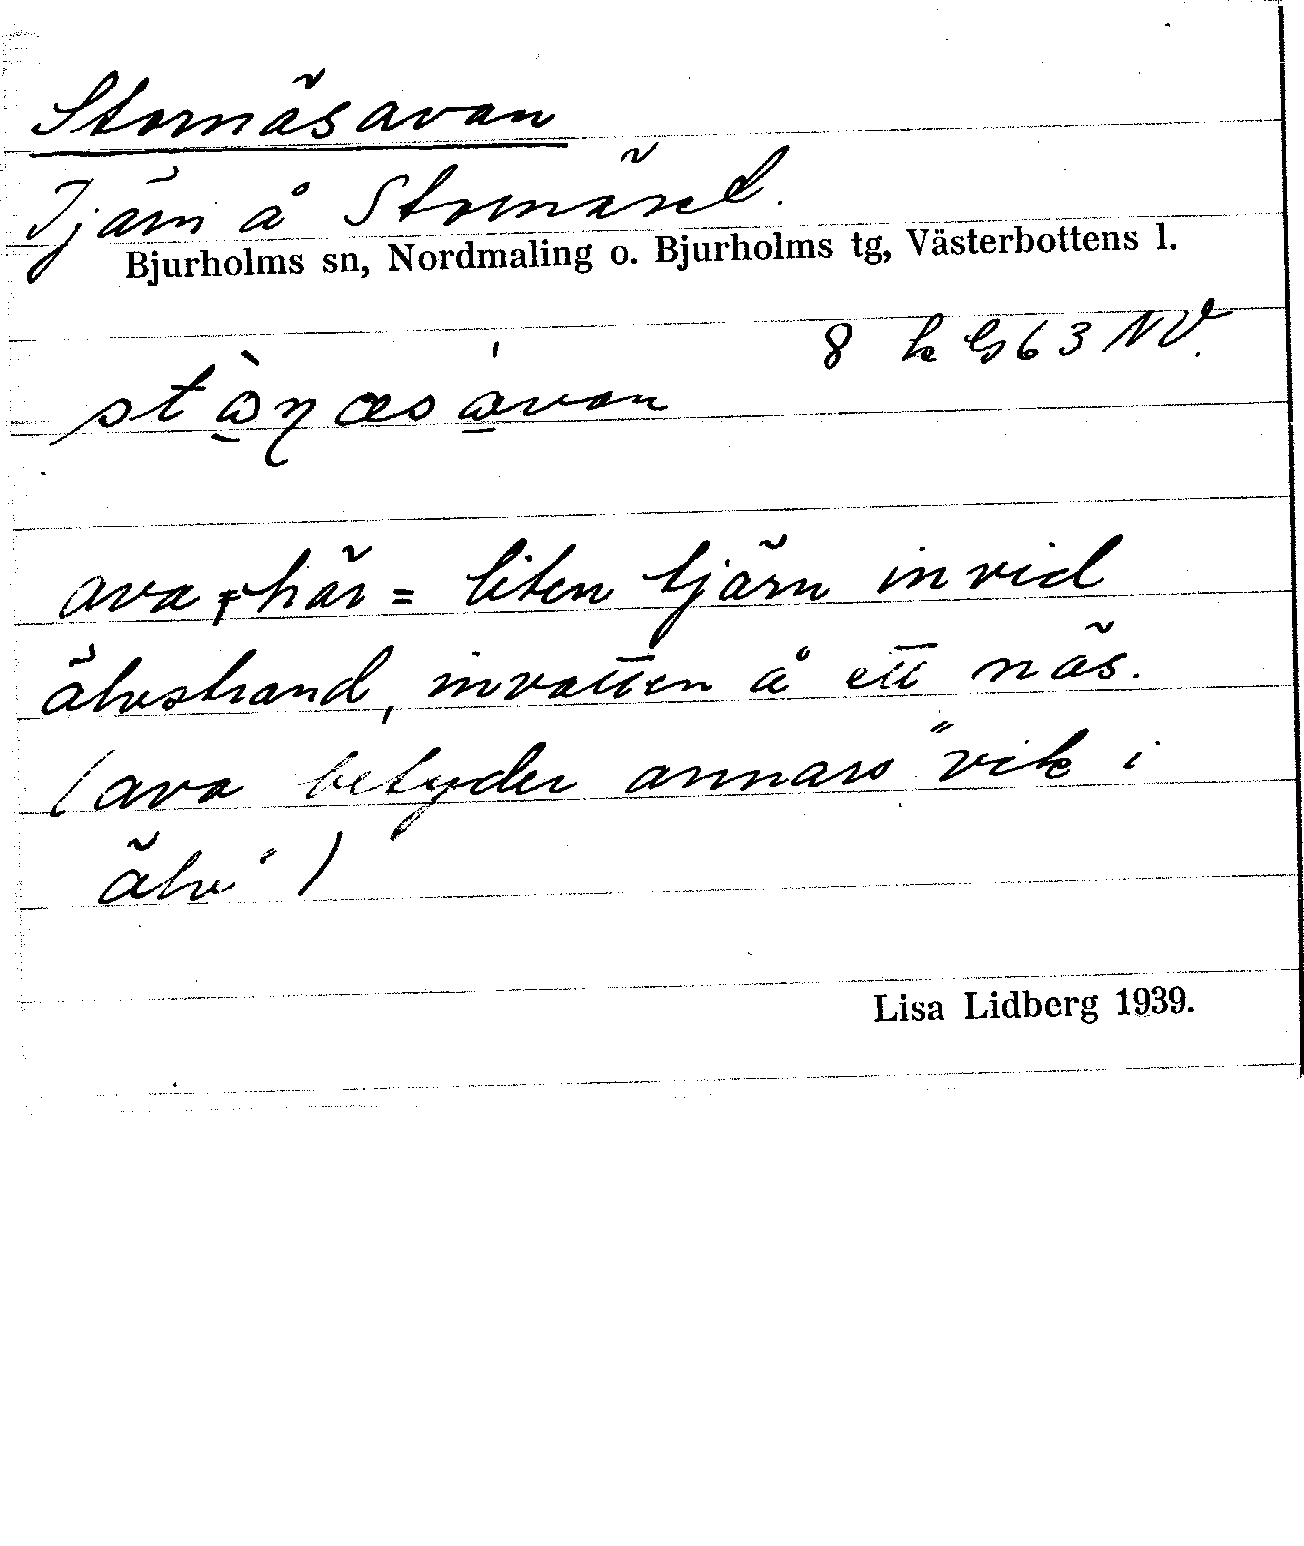 Stornäsavan
Tjärn å Stornäset.
Bjurholms sn, Nordmaling o. Bjurholms tg, Västerbottens l.
8 k G 63 NV.
avan
ava, här = liten tjärn invid
älvstrand, invatten å ett näs.
(ava betyder annars "vik i
älv")
Lisa Lidberg 1939.